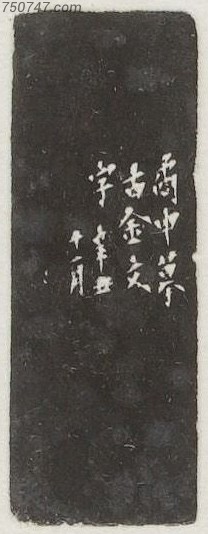 750747.com
中摹
古金文
字辛丑
十一月